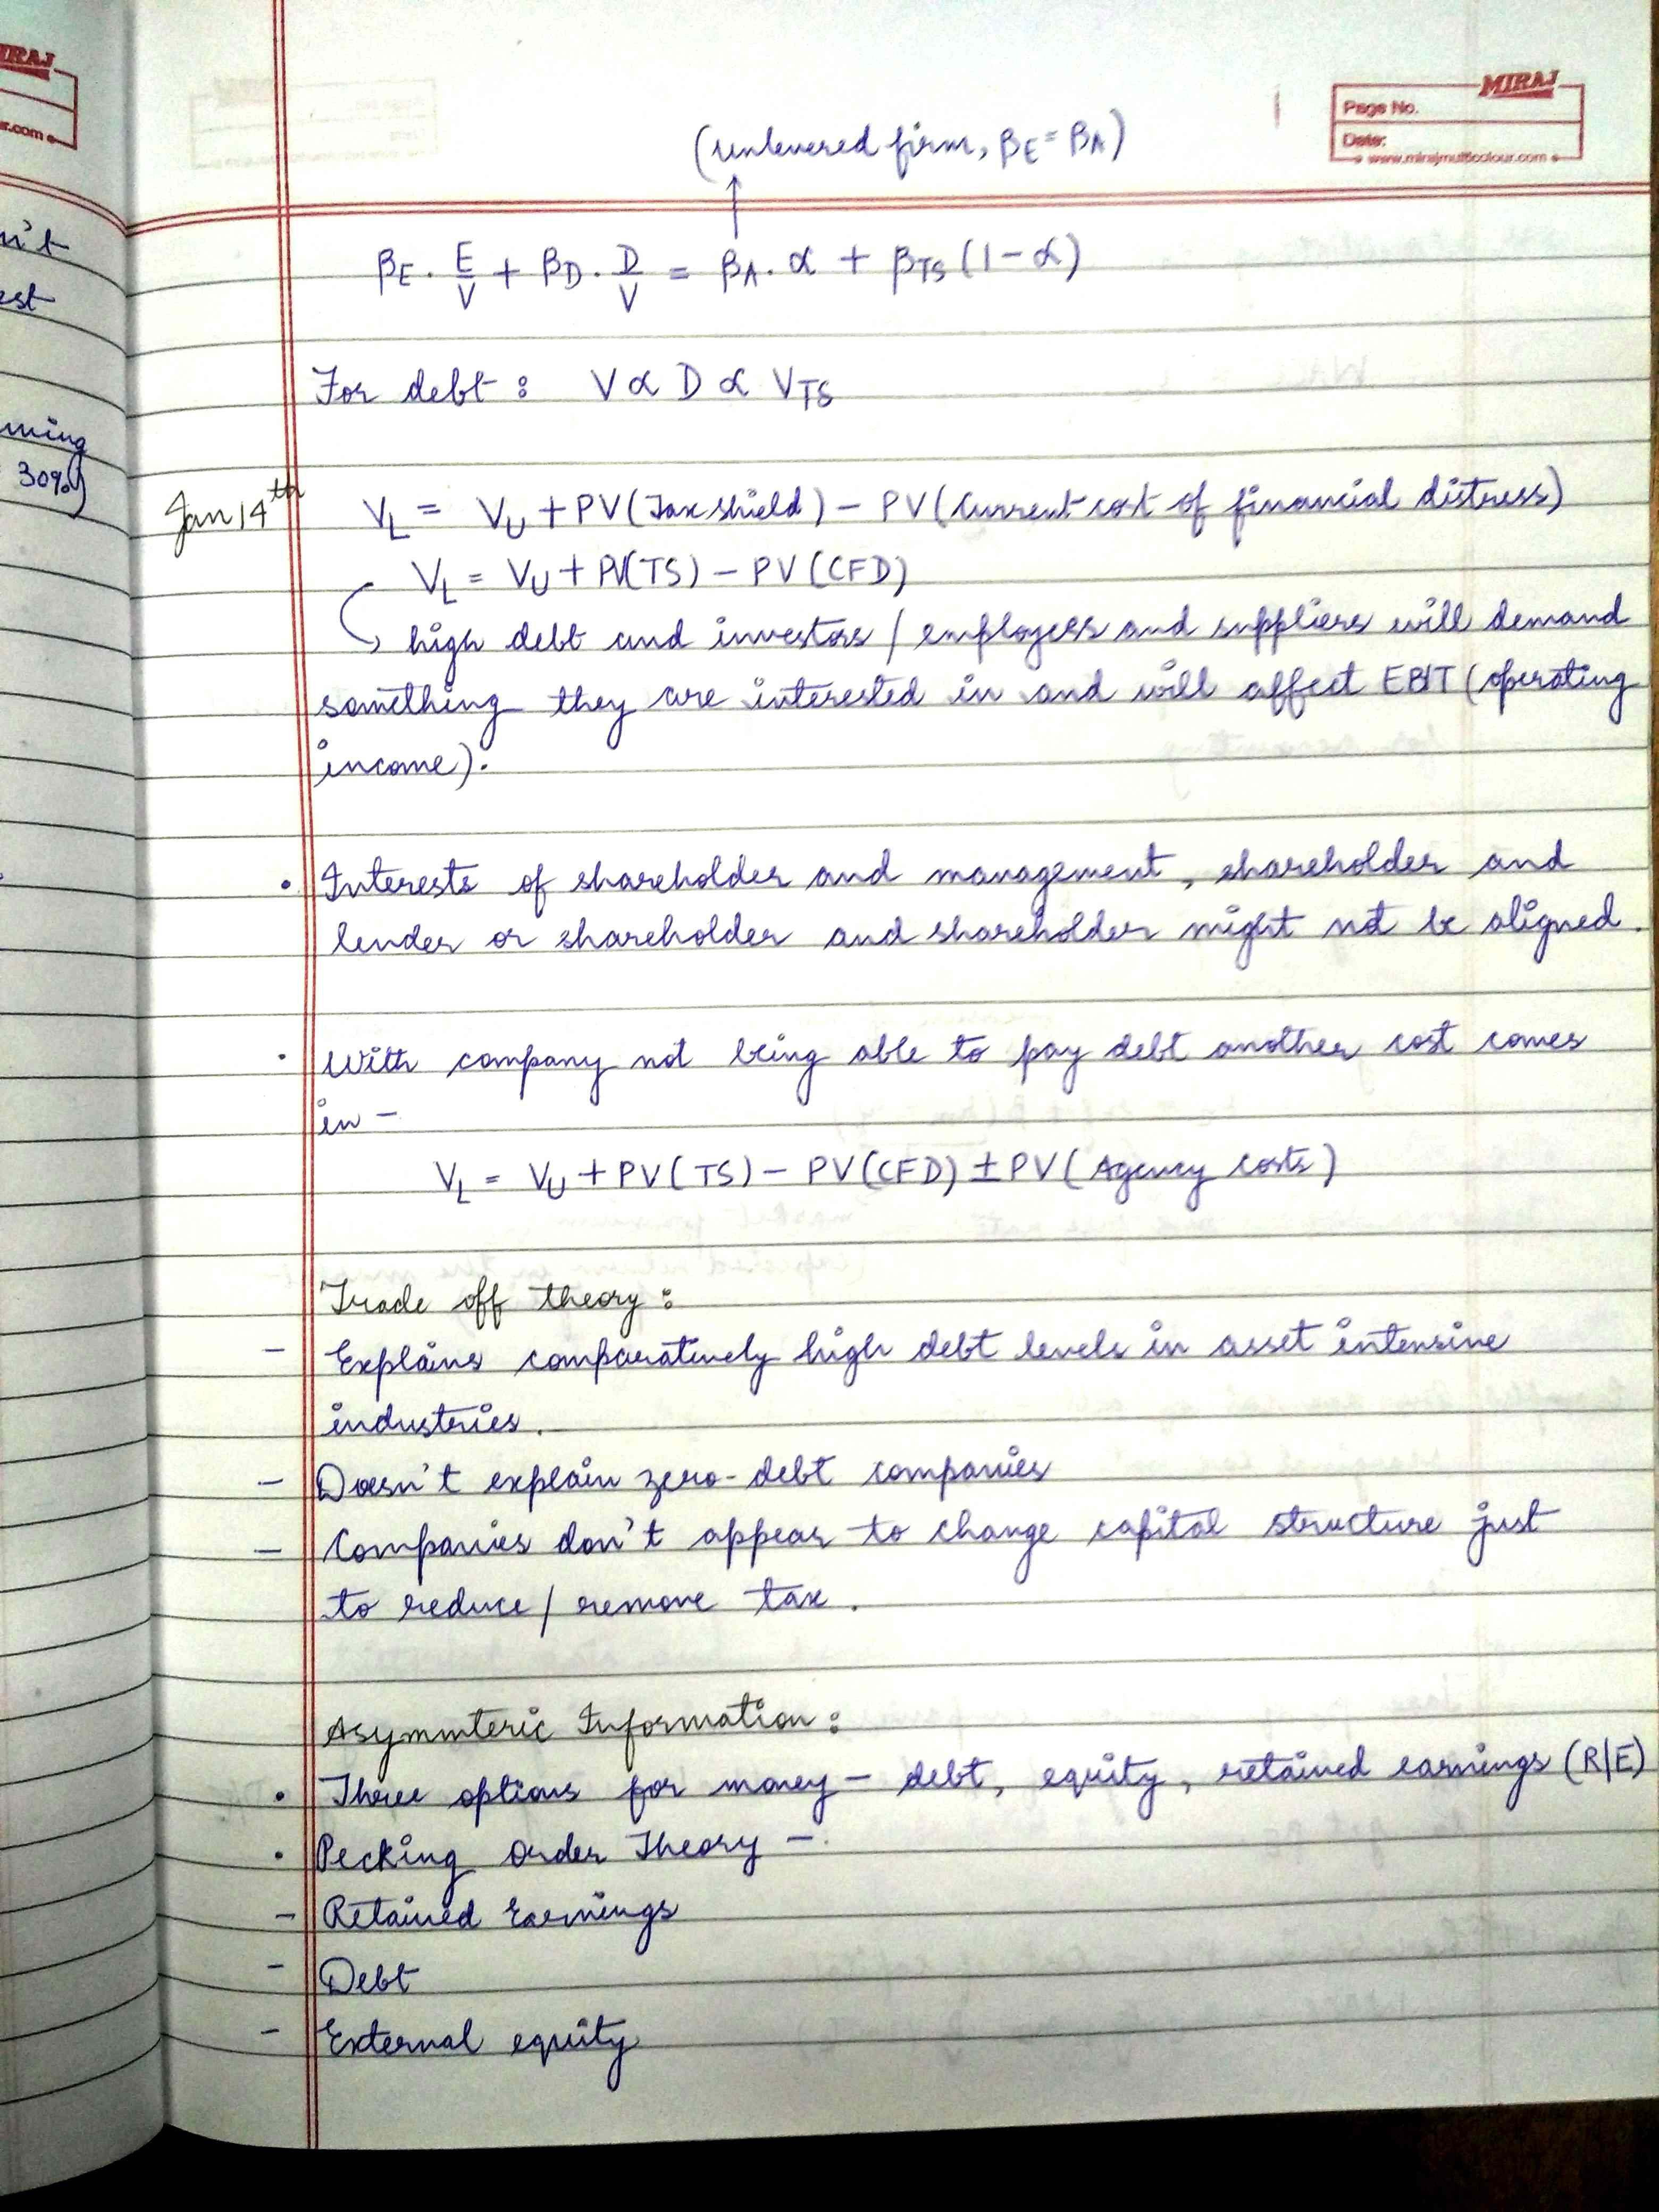 MIRAJ
r.com
n't
est
ming
30%)
MIRAJ
Page No.
Date:
www.mirajmulticolour.com
(unlevered firm, βE = βA)
↑
βE . E/V + βD . D/V = βA . α + βTS (1-α)
For debt : V α D α VTS
Jan 14th
VL = VU + PV(Tax shield) - PV (Current cost of financial distress)
VL = VU + PV(TS) - PV (CFD)
high debt and investors / employees and suppliers will demand
something they are interested in and will affect EBIT (operating
income).
• Interests of shareholder and management, shareholder and
lender or shareholder and shareholder might not be aligned.
• With company not being able to pay debt another cost comes
in -
VL = VU + PV(TS) - PV(CFD) ± PV (Agency costs)
Trade off theory :
- Explains comparatively high debt levels in asset intensive
industries.
- Doesn't explain zero-debt companies
- Companies don't appear to change capital structure just
to reduce / remove tax.
Asymmteric Information :
• Three options for money - debt, equity, retained earnings (R/E)
• Pecking Order Theory -
- Retained Earnings
- Debt
- External equity